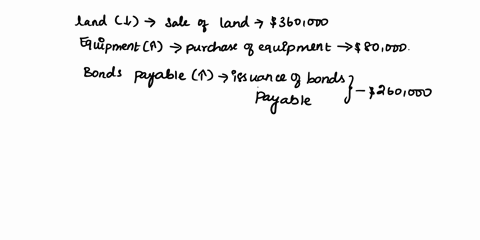 land (↓) → sale of land → $360,000
Equipment (↑) → purchase of equipment → $80,000.
Bonds payable (↑) → issuance of bonds payable } - $260,000